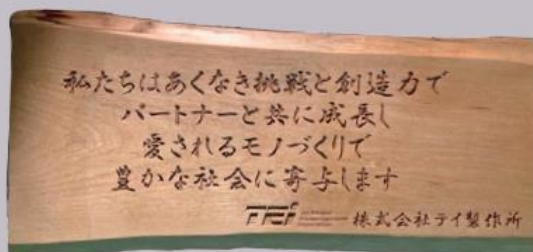 私たちはあくなき挑戦と創造力で
パートナーと共に成長し
愛されるモノづくりで
豊かな社会に寄与します
TEi 株式会社テイ製作所